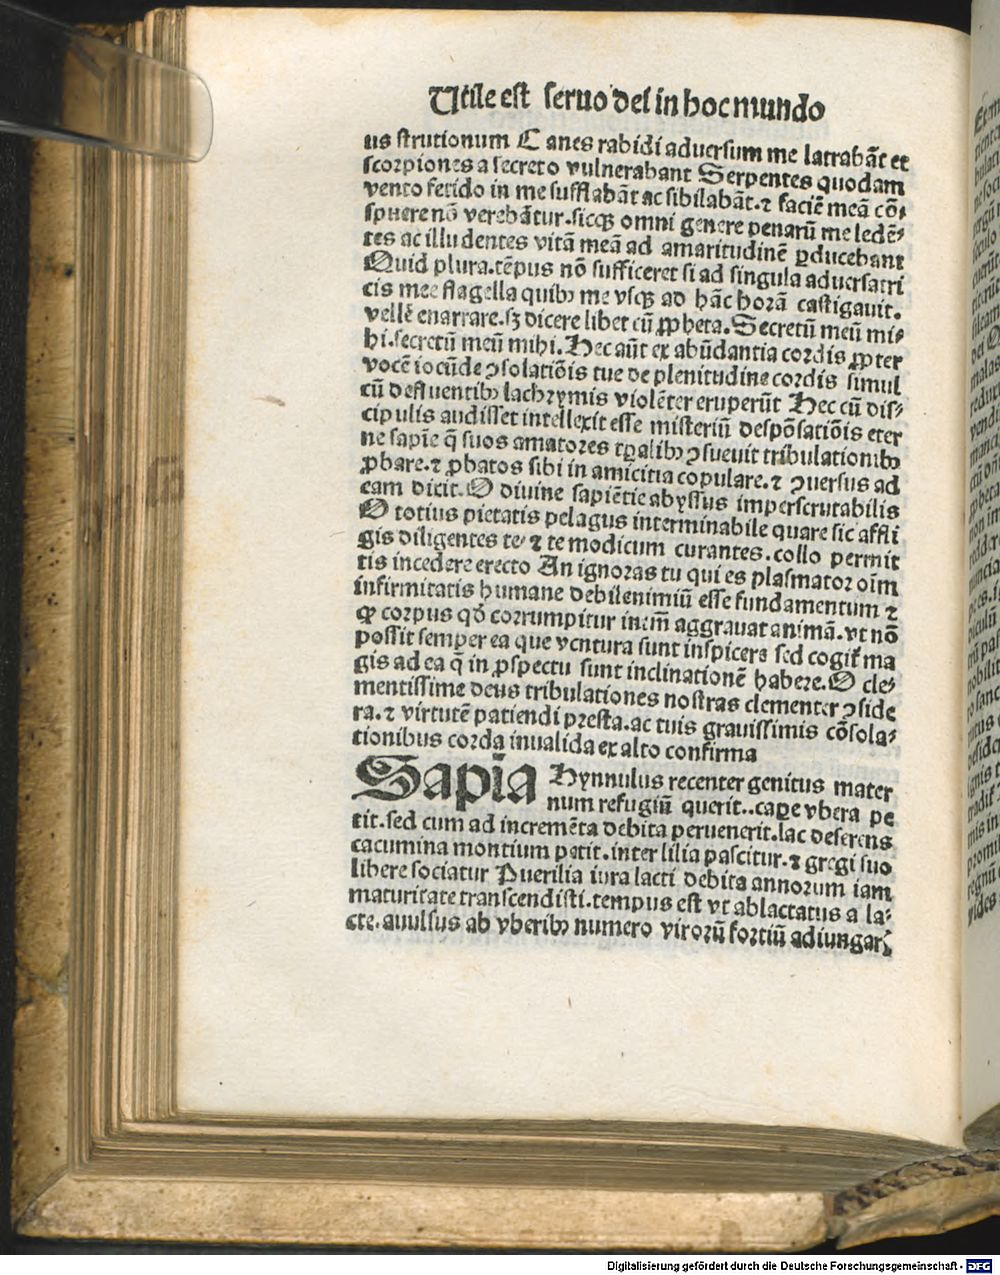 Utile est seruo dei in hoc mundo
us strutionum Canes rabidi aduersum me latrabāt et
scorpiones a secreto vulnerabant Serpentes quodam
vento fetido in me sufflabāt ac sibilabāt. ⁊ faciē meā cō⸗
spuere nō verebātur. sicqꝫ omni genere penarū me ledē⸗
tes ac illudentes vitā meā ad amaritudinē ꝑducebant
Quid plura. tēpus nō sufficeret si ad singula aduersatri
cis mee flagella quibꝫ me vsqꝫ ad hāc horā castigauit.
vellē enarrare. sꝫ dicere libet cū ꝓpheta. Secretū meū mi⸗
hi. secretū meū mihi. Hec aūt ex abūdantia cordis ꝓpter
vocē iocūde ꝯsolatiōis tue de plenitudine cordis simul
cū defluentibꝫ lachrymis violēter eruperūt Hec cū dis⸗
cipulis audisset intellexit esse misteriū despōsatiōis eter
ne sapiē q̄ suos amatores tꝑalibꝫ ꝯsueuit tribulationibꝫ
ꝓbare. ⁊ ꝓbatos sibi in amicitia copulare. ⁊ ꝯuersus ad
eam dicit. O diuine sapiētie abyssus imperscrutabilis
O totius pietatis pelagus interminabile quare sic affli
gis diligentes te/ ⁊ te modicum curantes. collo permit
tis incedere erecto An ignoras tu qui es plasmator oīm
infirmitatis humane debile nimiū esse fundamentum ⁊
ꝙ corpus qđ corrumpitur inem̄ aggrauat animā. vt nō
possit semper ea que ventura sunt inspicere sed cogit̄ ma
gis ad ea q̄ in ꝓspectu sunt inclinationē habere. O cle⸗
mentissime deus tribulationes nostras clementer ꝯside
ra. ⁊ virtutē patiendi presta. ac tuis grauissimis cōsola⸗
tionibus corda inualida ex alto confirma
Sapīa Hynnulus recenter genitus mater
num refugiū querit.. capeꝰ vbera pe
tit. sed cum ad incremēta debita peruenerit. lac deserens
cacumina montium petit. inter lilia pascitur. ⁊ gregi suo
libere sociatur Puerilia iura lacti debita annorum iam
maturitate transcendisti. tempus est vt ablactatus a la⸗
cte. auulsus ab vberibꝫ numero virorū fortiū adiungarꝭ
Digitalisierung gefördert durch die Deutsche Forschungsgemeinschaft - DFG